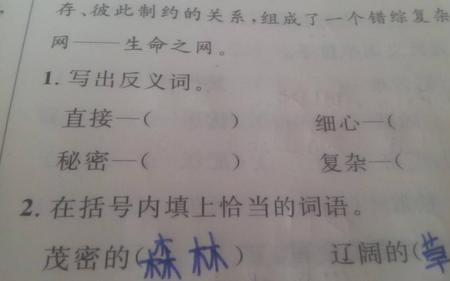 存、彼此制约的关系,组成了一个错综复杂
网——生命之网。
1. 写出反义词。
直接—(  ) 细心—(
秘密—(  ) 复杂—(
2. 在括号内填上恰当的词语。
茂密的(森林) 辽阔的(草